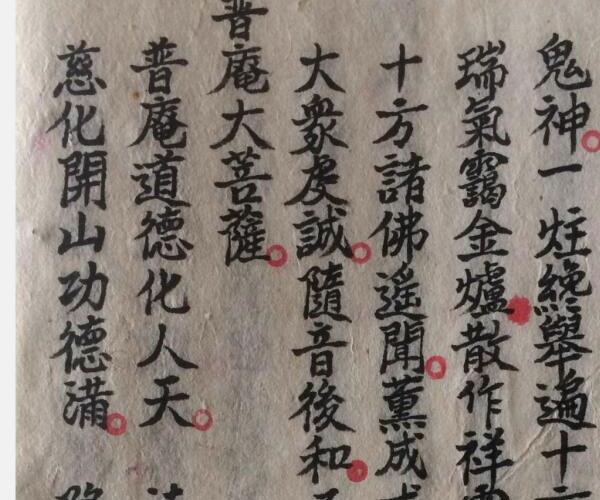 鬼神一炷纔舉遍十
瑞氣靄金爐散作祥
十方諸佛遥聞薰成
大衆虔誠隨音後和
普庵大菩薩
普庵道德化人天
慈化開山功德滿